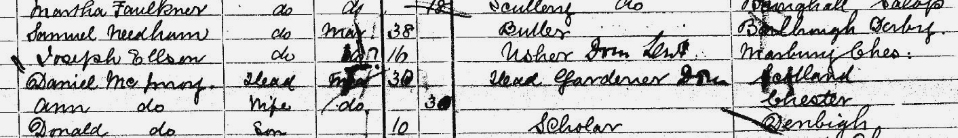 Martha Faulkner do do 18 Scullery do Salop
Samuel Needham do Mar 38 Butler Barlborough Derby.
Joseph Ellson do 16 Usher Dom Servt Marbury Ches:
Daniel Head 30 Head Gardener Dom Scotland
Ann do Wife do 30 Chester
Donald do Son 10 Scholar Denbigh